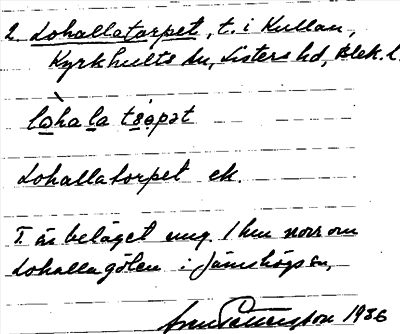 2. Lohallatorpet, t. i Kullan,
Kyrkhults sn, Listers hd, Blek. l.
lo̲hala̲ to̲rpət
Lohallatorpet ek.
T. är beläget ung. 1 km norr om
Lohallagölen i Jämshögs sn,
Pettersson 1936